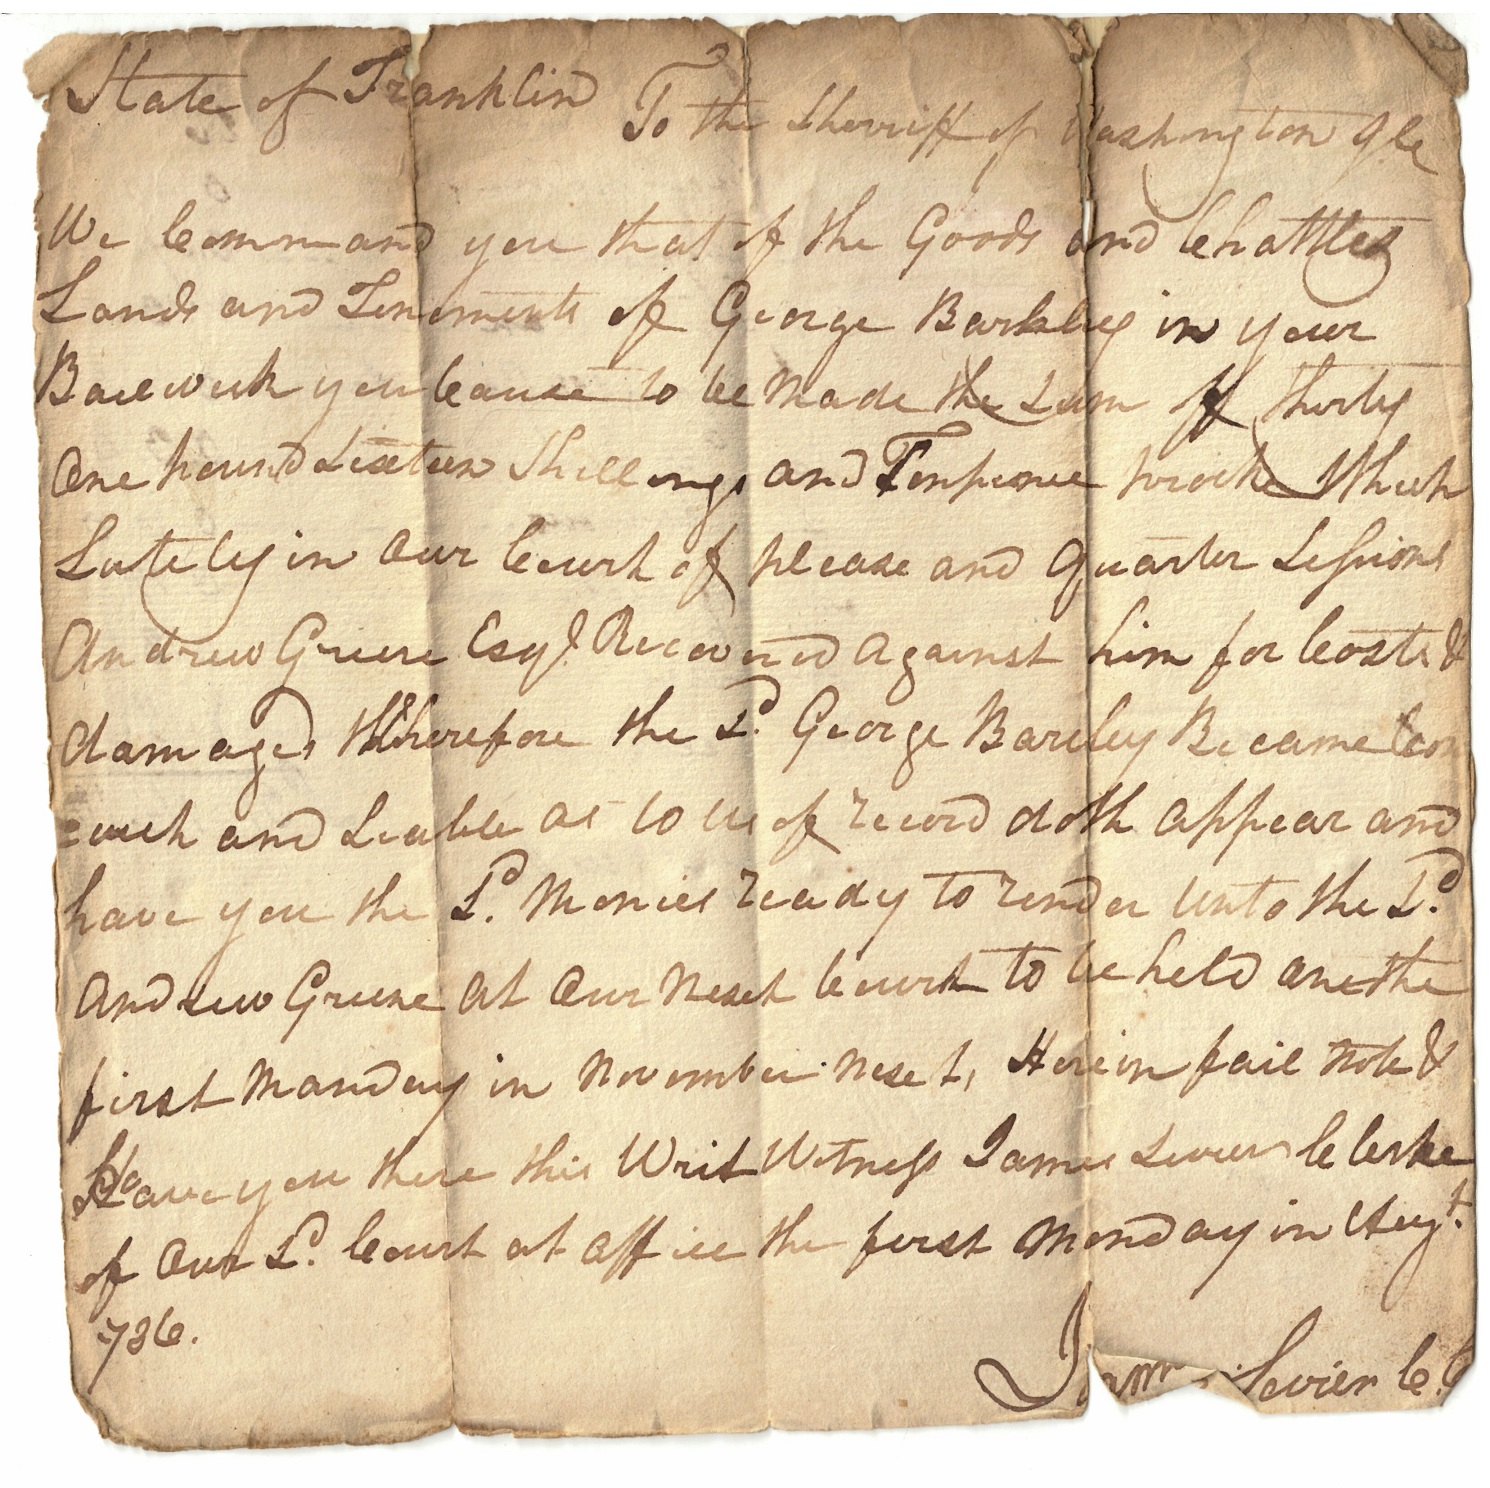 State of Franklin To the Sherriff of Washington
We Command you that of the Goods and Chattles
Lands and Tenements of George Barkley in your
Bailwick you Cause to be Made the Sum of thirty
One pound Sixteen Shillings and Tenpence Which
Lately in Our Court of please and Quarter Sessions
Andrew Greene Esqr. Recovered Against him for Costs &
damages Wherefore the Sd. George Barcley Became Con
and Liable as to us of record doth Appear and
have you the Sd. Monies ready to render Unto the Sd.
Andrew Greene At Our Next Court to be held one the
first Monday in November Next, Herein fail Not &
Have you there this Writ Witness James Sevier Clerke
of Our Sd. Court at office the first Monday in Augt.
786.
James Sevier C.